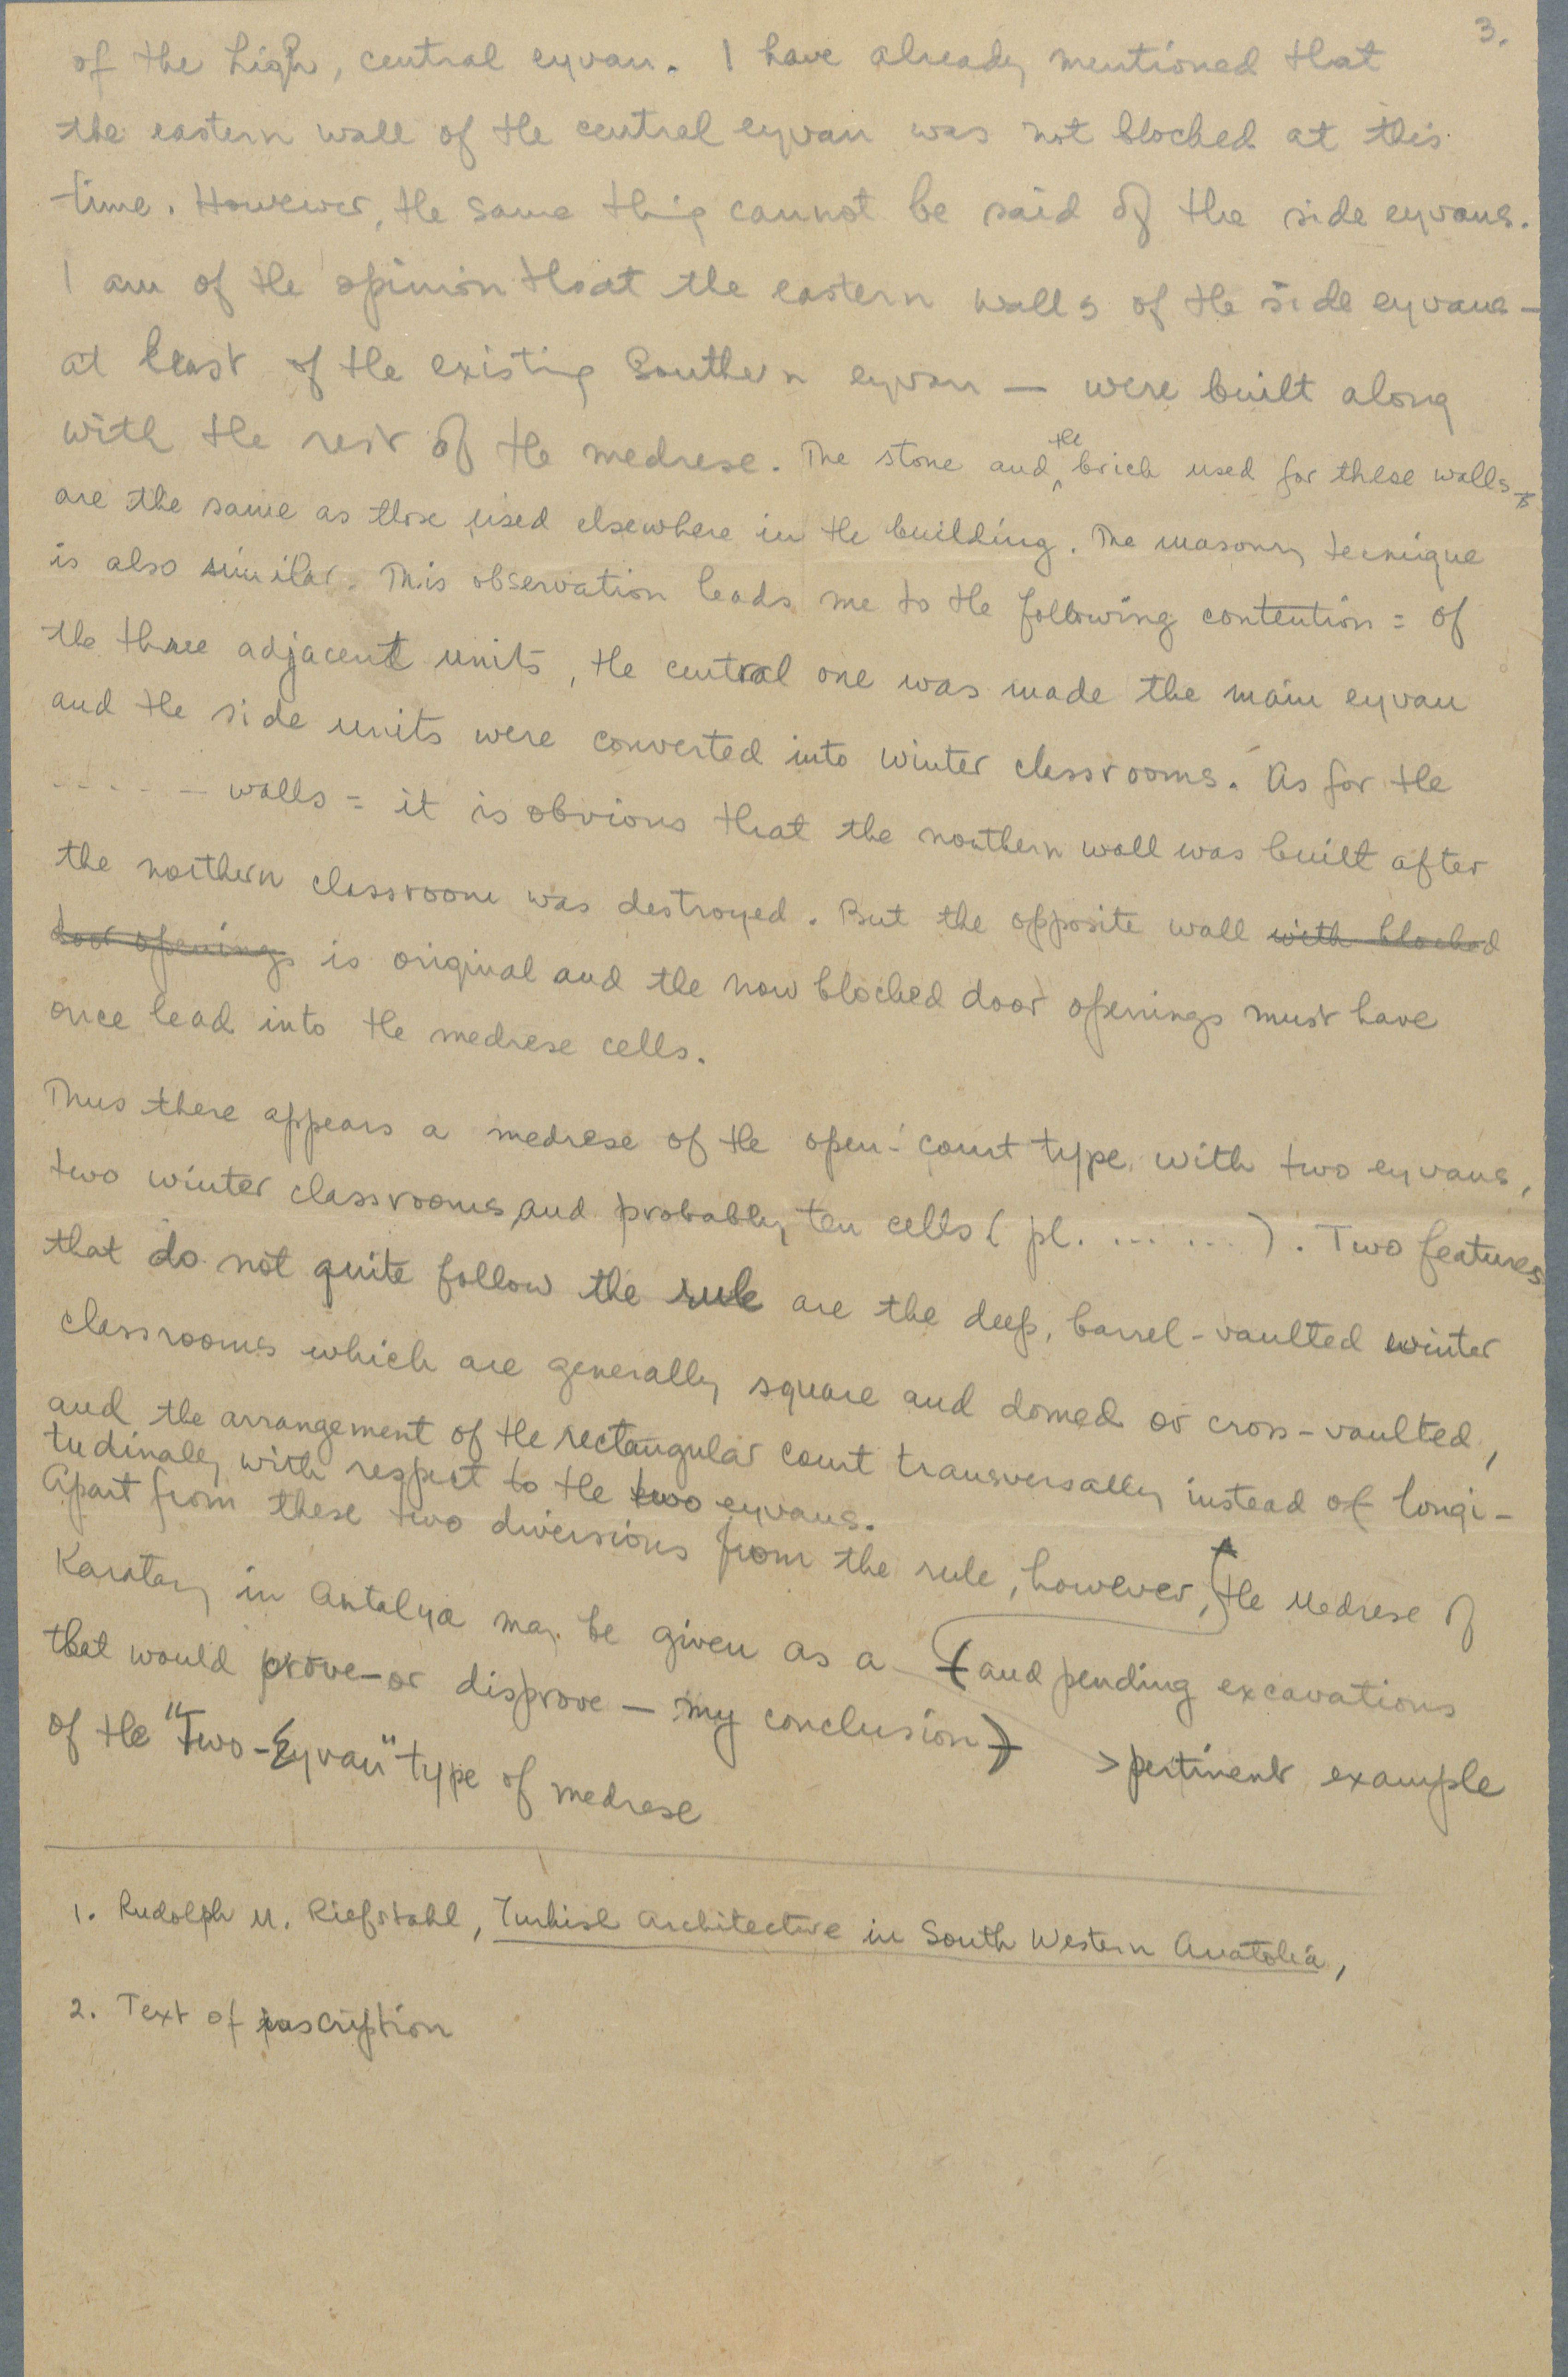 3.
of the high, central eyvan. I have already mentioned that
the eastern wall of the central eyvan was not blocked at this
time. However, the same thing cannot be said of the side eyvans.
I am of the opinion that the eastern walls of the side eyvans —
at least of the existing Southern eyvan — were built along
with the rest of the medrese. The stone and the brick used for these walls
are the same as those used elsewhere in the building. The masonry tecnique
is also similar. This observation leads me to the following contention = of
the three adjacent units, the central one was made the main eyvan
and the side units were converted into winter classrooms. As for the
- - - - - walls = it is obvious that the northern wall was built after
the northern classroom was destroyed. But the opposite wall with blocked
door openings is original and the now blocked door openings must have
once lead into the medrese cells.
Thus there appears a medrese of the open-court type, with two eyvans,
two winter classrooms, and probably ten cells ( pl. ... ... ). Two features
that do not quite follow the rule are the deep, barrel-vaulted winter
classrooms which are generally square and domed or cross-vaulted,
and the arrangement of the rectangular court transversally instead of longi-
tudinally with respect to the two eyvans.
Apart from these two diversions from the rule, however, the Medrese of
Karatay in Antalya may be given as a (and pending excavations
that would prove — or disprove — my conclusion) > pertinent example
of the "Two-Eyvan" type of medrese
1. Rudolph M. Riefstahl, Turkish Architecture in South Western Anatolia,
2. Text of inscription